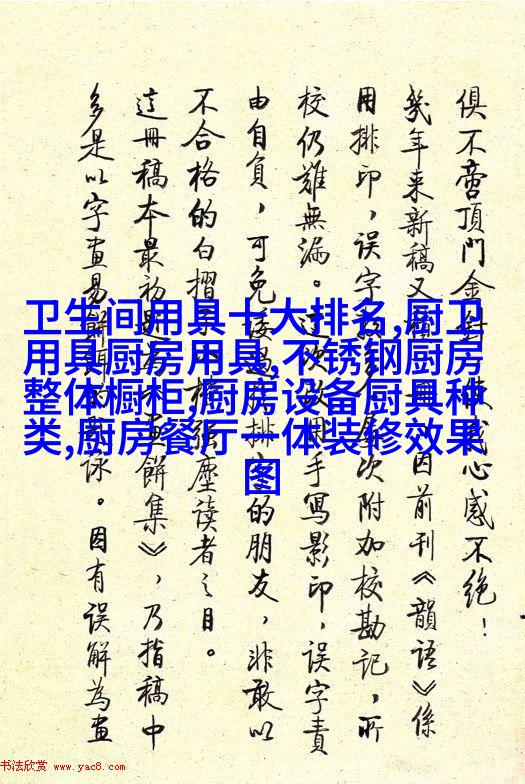 卫生间用具十大排名,厨卫
用具厨房用具,不锈钢厨房
整体橱柜,厨房设备厨具种
类,厨房餐厅一体装修效果
图
俱不啻頂門金心感不絕!
幾年来新稿又因前刊《韻語》係
用排印,誤字次附加校勘記,所
校仍難無漏。这次用手寫影印,誤字責
由自負,可免排的朋友,非敢以
不合格的白摺强塵读者之目。
這冊稿本最初畫餅集》,乃指稿中
多是以字畫易餅詠。因有误解為畫
书法欣赏 www.yac8.com